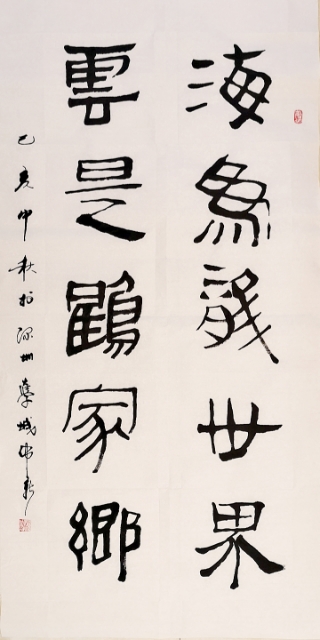 海為龍世界
雲是鶴家鄉
己亥中秋於深圳